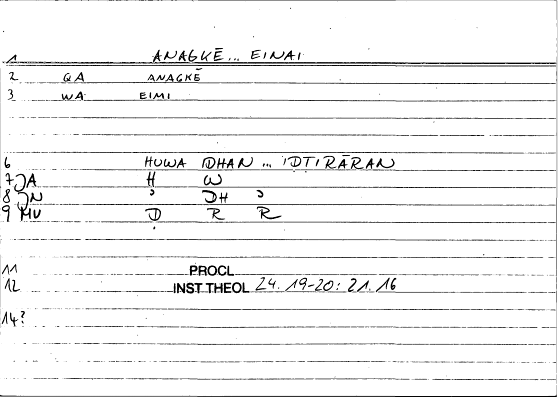 1 ANAGKĒ... EINAI
2 QA ANAGKĒ
3 WA EIMI
6 HUWA IDHAN ... IDTIRĀRAN
7 JA H W
8 JN ʾ DH ʾ
9 MU Ḍ R R
11 PROCL
12 INST THEOL 24. 19-20: 21. 16
14?